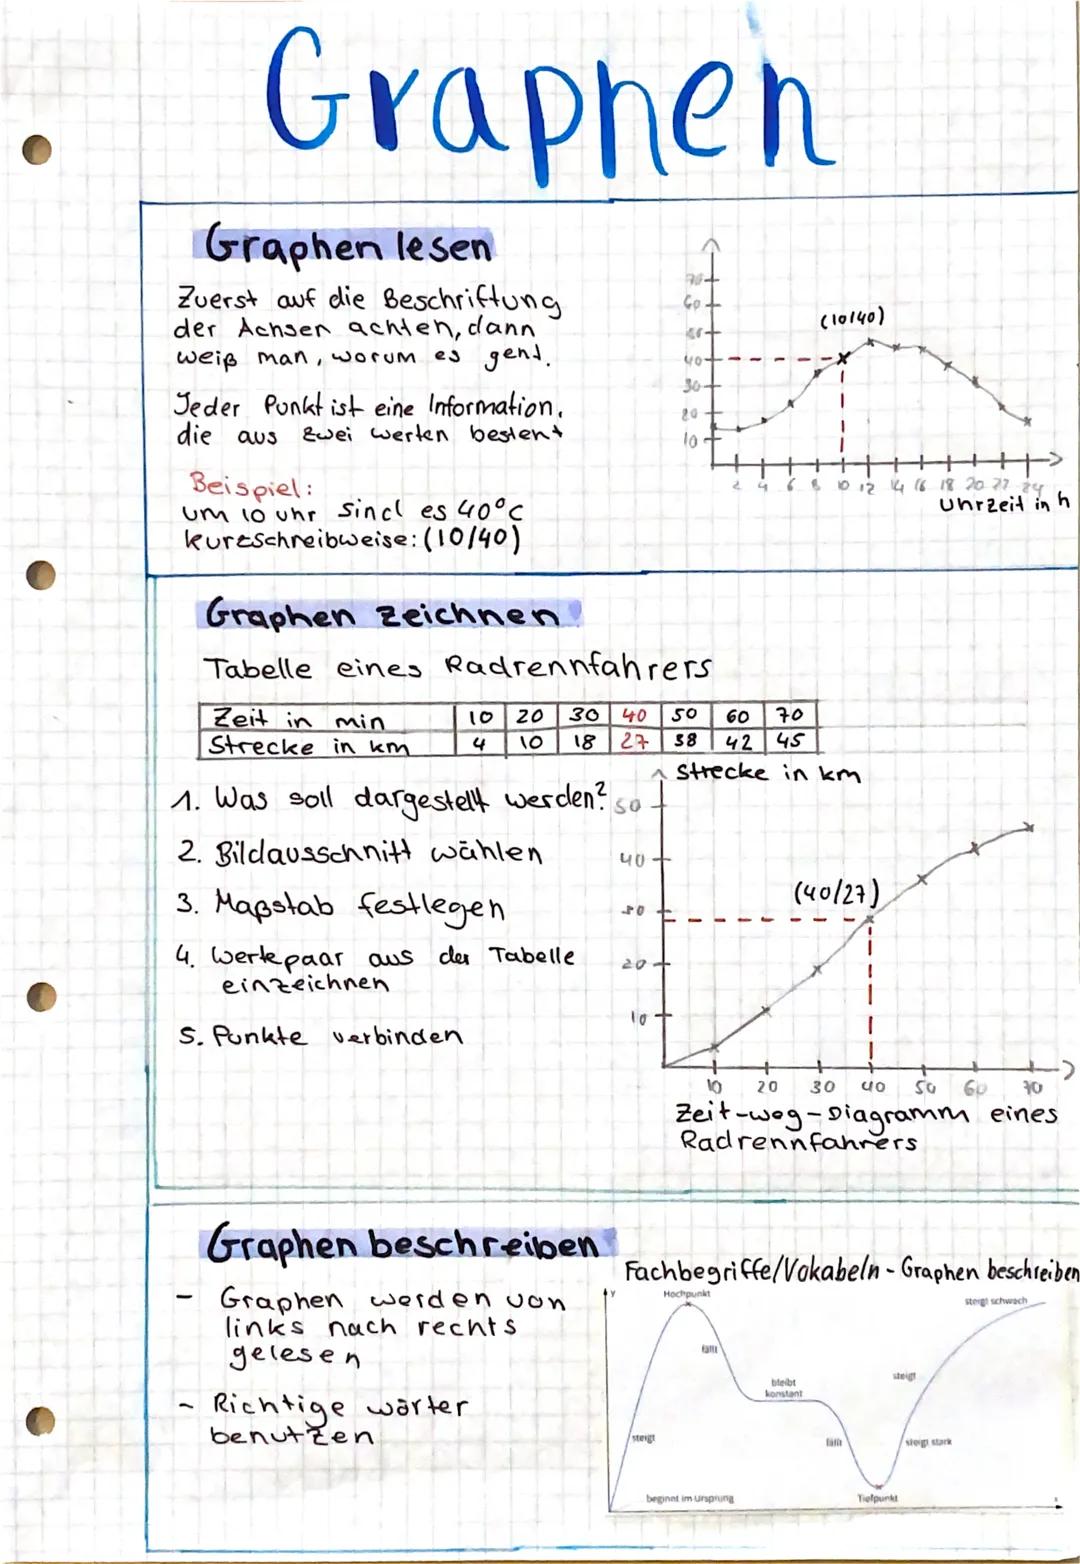 Graphen
Graphen lesen
Zuerst auf die Beschriftung
der Achsen achten, dann
weiß man, worum es geht.
Jeder Punkt ist eine Information,
die aus zwei werten besteht
Beispiel:
um 10 uhr sind es 40°C
kurzschreibweise: (10/40)
70
60
50
40
30
20
10
(10/40)
2 4 6 8 10 12 14 16 18 20 22 24
Uhrzeit in h
Graphen zeichnen
Tabelle eines Radrennfahrers
Zeit in min 10 20 30 40 50 60 70
Strecke in km 4 10 18 27 38 42 45
1. Was soll dargestellt werden?
2. Bildausschnitt wählen
3. Maßstab festlegen
4. Wertepaar aus der Tabelle
einzeichnen
5. Punkte verbinden
Strecke in km
50
40
30
20
10
(40/27)
10 20 30 40 50 60 70
Zeit-weg-Diagramm eines
Radrennfahrers
Graphen beschreiben
- Graphen werden von
links nach rechts
gelesen
- Richtige wörter
benutzen
Fachbegriffe/Vokabeln - Graphen beschreiben
y
Hochpunkt
steigt schwach
fällt
bleibt
konstant
steigt
steigt
fällt
steigt stark
beginnt im Ursprung
Tiefpunkt
x